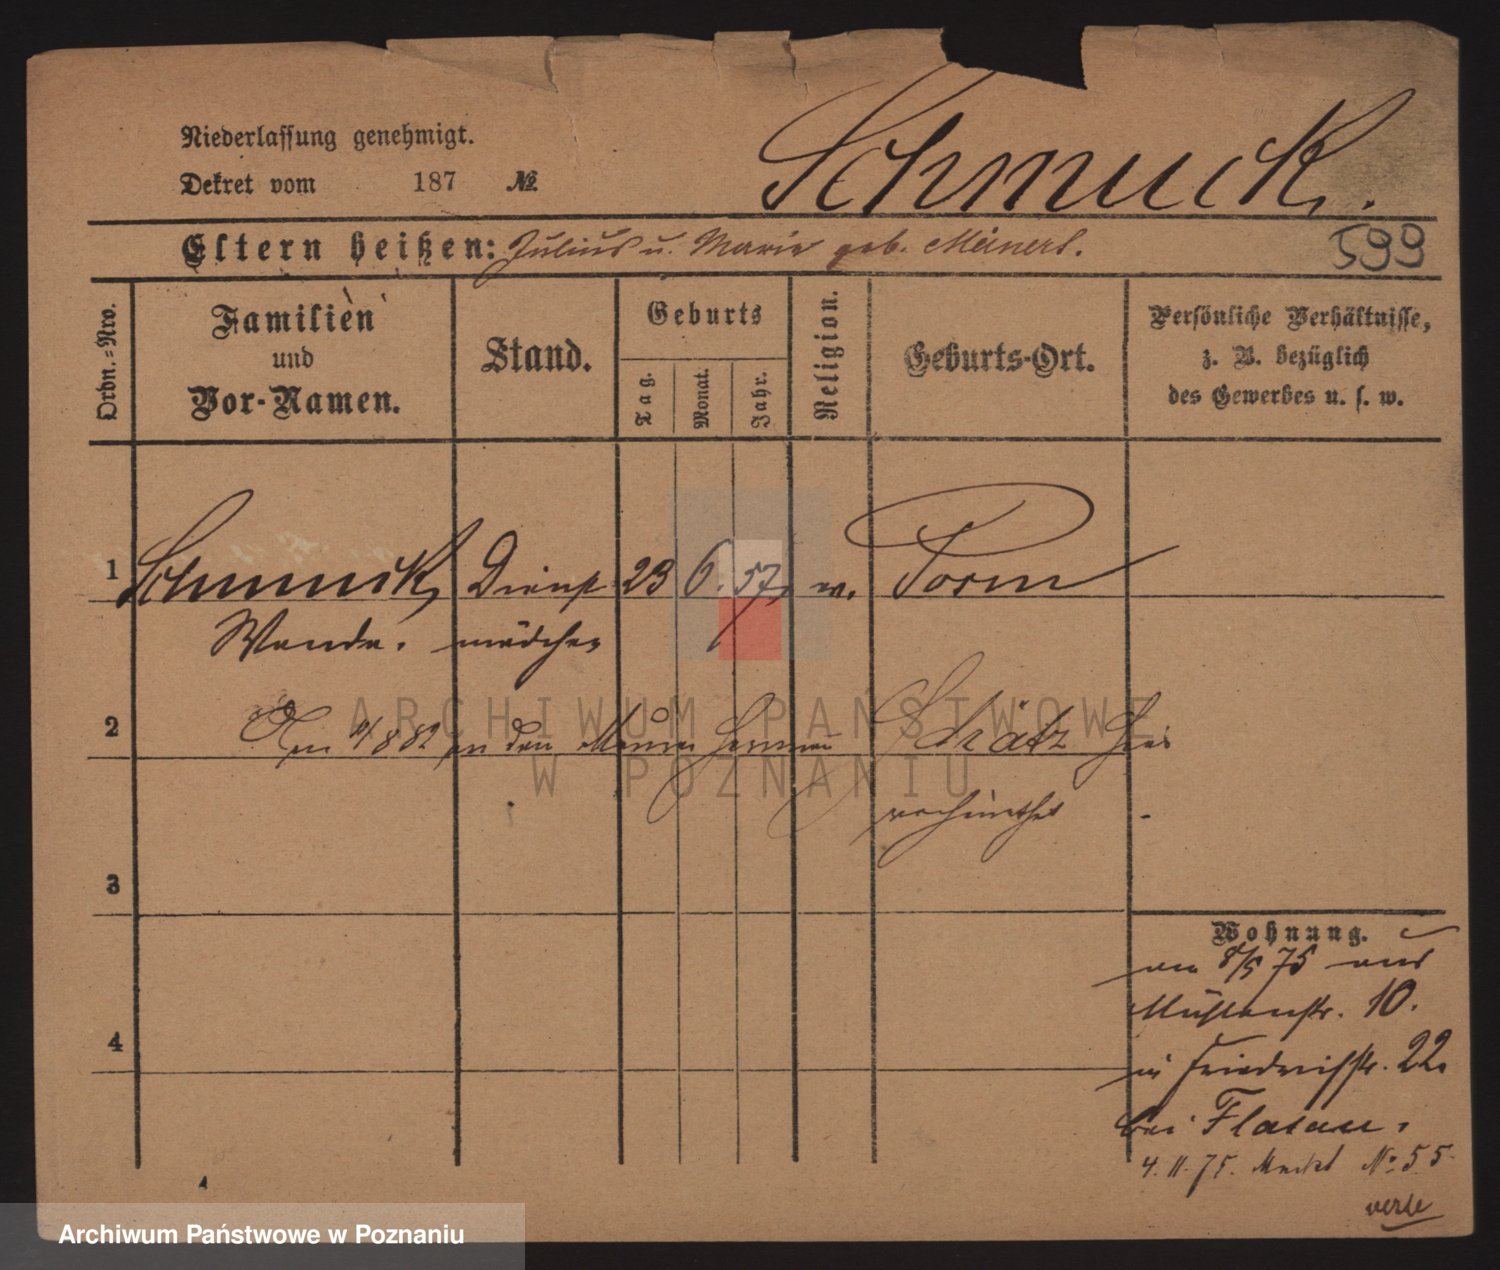 Niederlassung genehmigt.
Dekret vom 187 №
Schmuck.
Eltern heißen: Julius u. Marie geb. Meinert.
599
Ordn.-Nro.
Familien
und
Vor-Namen.
Stand.
Geburts
Tag.
Monat.
Jahr.
Religion.
Geburts-Ort.
Persönliche Verhältnisse,
z. B. bezüglich
des Gewerbes u. s. w.
1 Schmuck, Dienst 23 6. 57, w. Posen
Wanda. mädchen
2 an den Maurer Herman hier
verheirathet
3
Wohnung.
am 8/5 75 aus
Mühlenstr. 10.
in Friedrichstr. 22.
bei Flatau.
4
4.11.75. Markt No 55
verte
ARCHIWUM PAŃSTWOWE
W POZNANIU
Archiwum Państwowe w Poznaniu